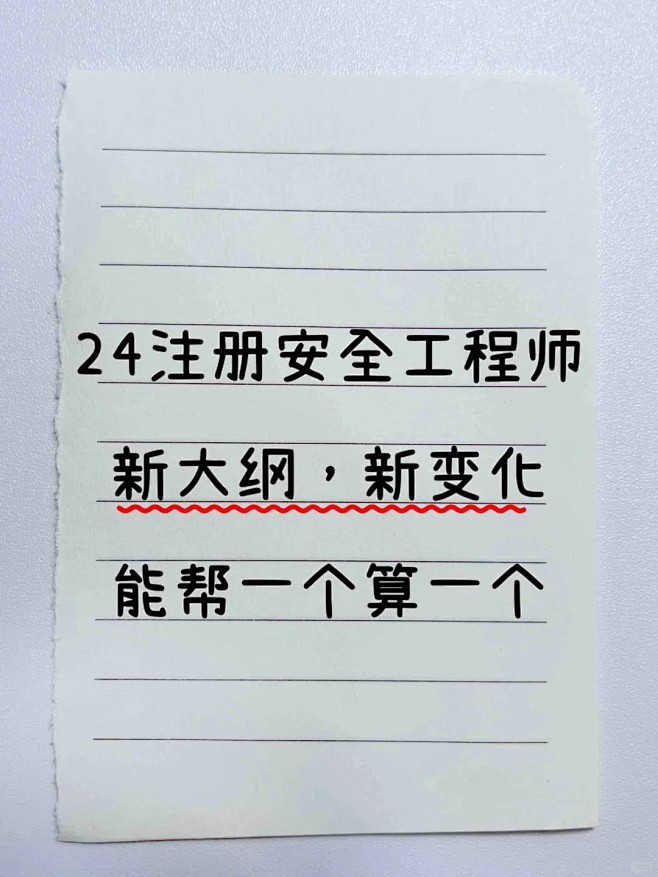 24注册安全工程师
新大纲，新变化
能帮一个算一个